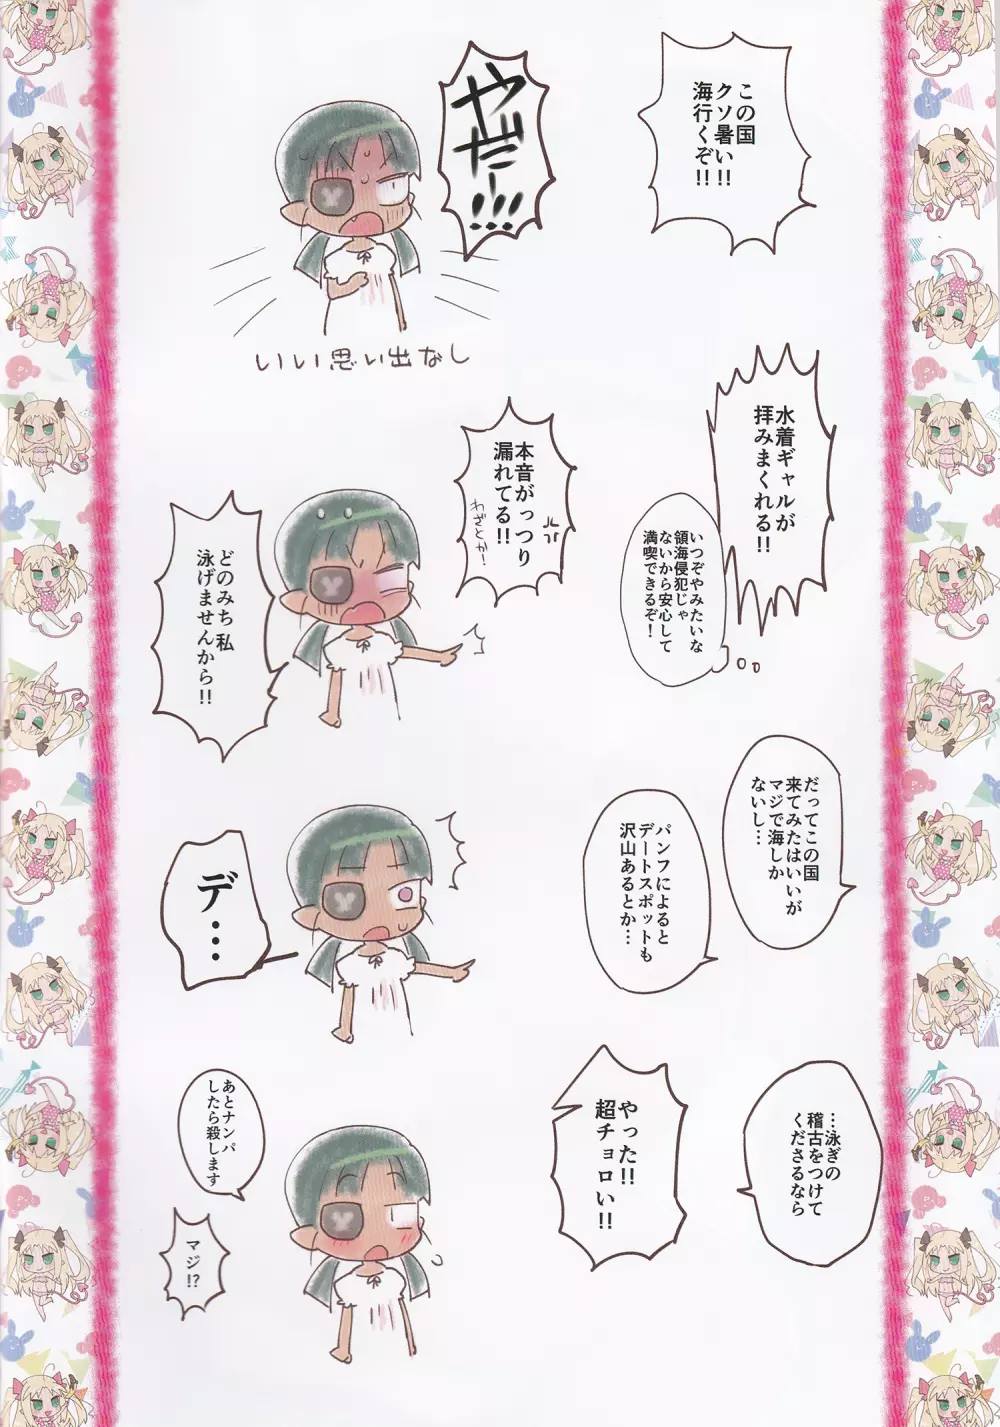 この国
クソ暑い!!
海行くぞ!!
やだー!!!
いい思い出なし
水着ギャルが
拝みまくれる!!
いつぞやみたいな
領海侵犯じゃ
ないから安心して
満喫できるぞ!
本音がっつり
漏れてる!!
わざとか!
どのみち私
泳げませんから!!
だってこの国
来てみたはいいが
マジで海しか
ないし…
パンフによると
デートスポットも
沢山あるとか…
デ…
…泳ぎの
稽古をつけて
くださるなら
やった!!
超チョロい!!
あとナンパ
したら殺します
マジ!?